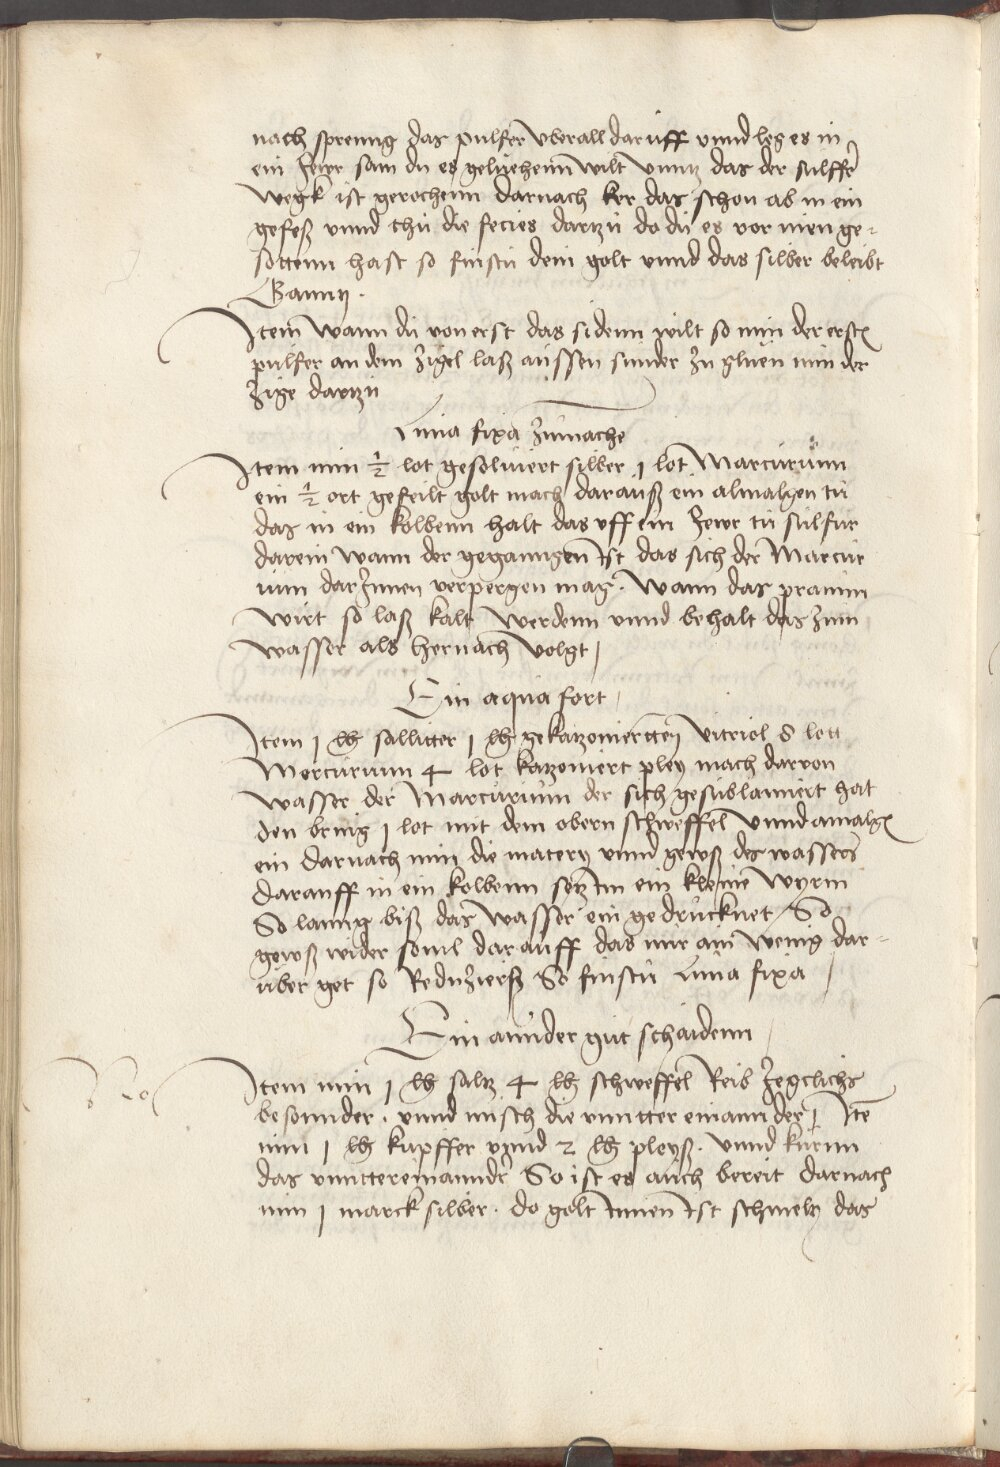 nach spreng das pulfer vberall daruff vnnd leg es in
ein fewr sam du es geluehenn wilt vnntz das der sulffer
wegk ist gerochenn darnach ker das schon ab in ein
gefeß vnnd thu die fecies dartzu do du es vor inen ge-
sottenn hast so finstu dein golt vnnd das silber beleibt
Ganntz.
Item wann du von erst das sidenn wilt so nim der erst
pulfer an dem zigel laß aussen sunder zu gluen nim der
zige dartzu
Luna fixa zumache
Item nim ½ lot gesoluiert silber j lot Marcurium
ein ½ ort gefeilt golt mach darauß ein almalgen tu
das in ein kolbenn halt das vff ein fewr tu sulfur
darein wann der geganngen Ist das sich der Marcur
ium darJnnen verpergen mag. wann das praunn
wirt so laß kalt werdenn vnnd behalt das zum
wasser als hernach volgt
Ein aqua fort
Item j lb sallitter j lb gekatzoniertten vitriol 8 lott
Mercurium 4 lot katzoniert pley mach darvon
wasser der Marcurium der sich gesublamiert hat
den bring j lot mit dem obern schweffel vnnd amalg
ein darnach nim die matery vnnd gewß des wassers
darauff in ein kolbenn setz Im ein kleine wyrm
So lanng biß das wasser ein gedrucknet So
gewß wider souil darauff das nur ain wenig dar-
uber get so Reduzierß So finstu Luna fixa
Ein annder gut schaidenn
Item nim j lb saltz 4 lb schweffel Reib Jegclichs
besonnder. vnnd misch die vnntter einannder Ite
nim j lb kupffer vnnd 2 lb pleyß. vnnd kurnn
das vnnttereinannder So ist es auch bereit darnach
nim j marck silber. do golt Innen Ist schmeltz das